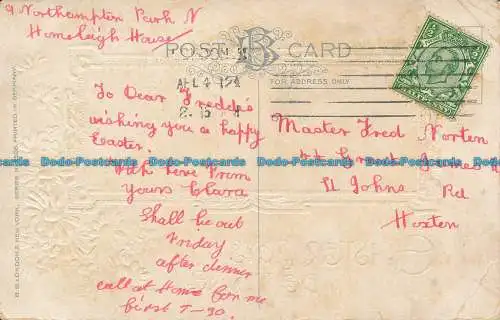 9 Northampton Park N
Homeleigh House
POST CARD
B
FOR ADDRESS ONLY
To Dear Freddie
wishing you a happy
Easter.
With Love From
Yours Clara
Shall be out
Friday
after dinner
call at Home for me
first 7-30.
Master Fred Norten
44 Great James
St Johns Rd
Hoxton
HALF PENNY
PRINTED IN GERMANY
Dodo-Postcards Dodo-Postcards Dodo-Postcards Dodo-Postcards Dodo-Postcards